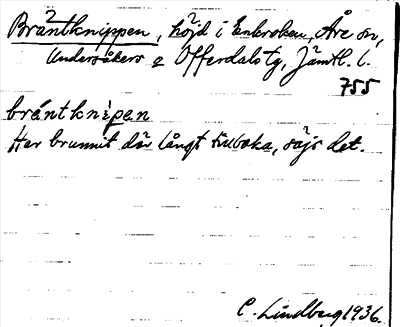 Bräntknippen, höjd i Enkroken, Åre sn,
Undersåkers & Offerdals tg, Jämtl. l.
755
bréntknìpen
Har brunnit där långt tillbaka, säjs det.
C. Lindberg 1936.